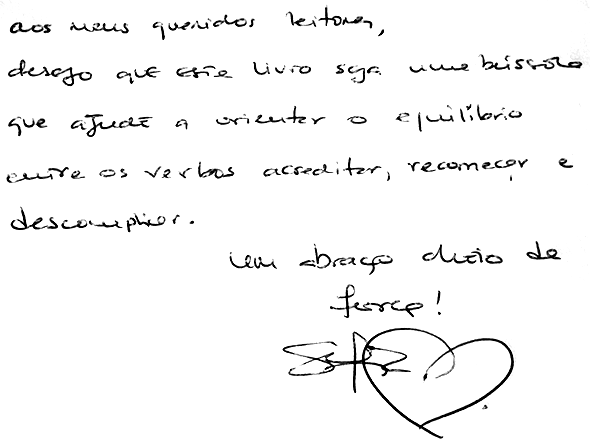 aos meus queridos leitores,
desejo que este livro seja uma bússola
que ajude a orientar o equilíbrio
entre os verbos acreditar, recomeçar e
descomplicar.
um abraço cheio de
força!